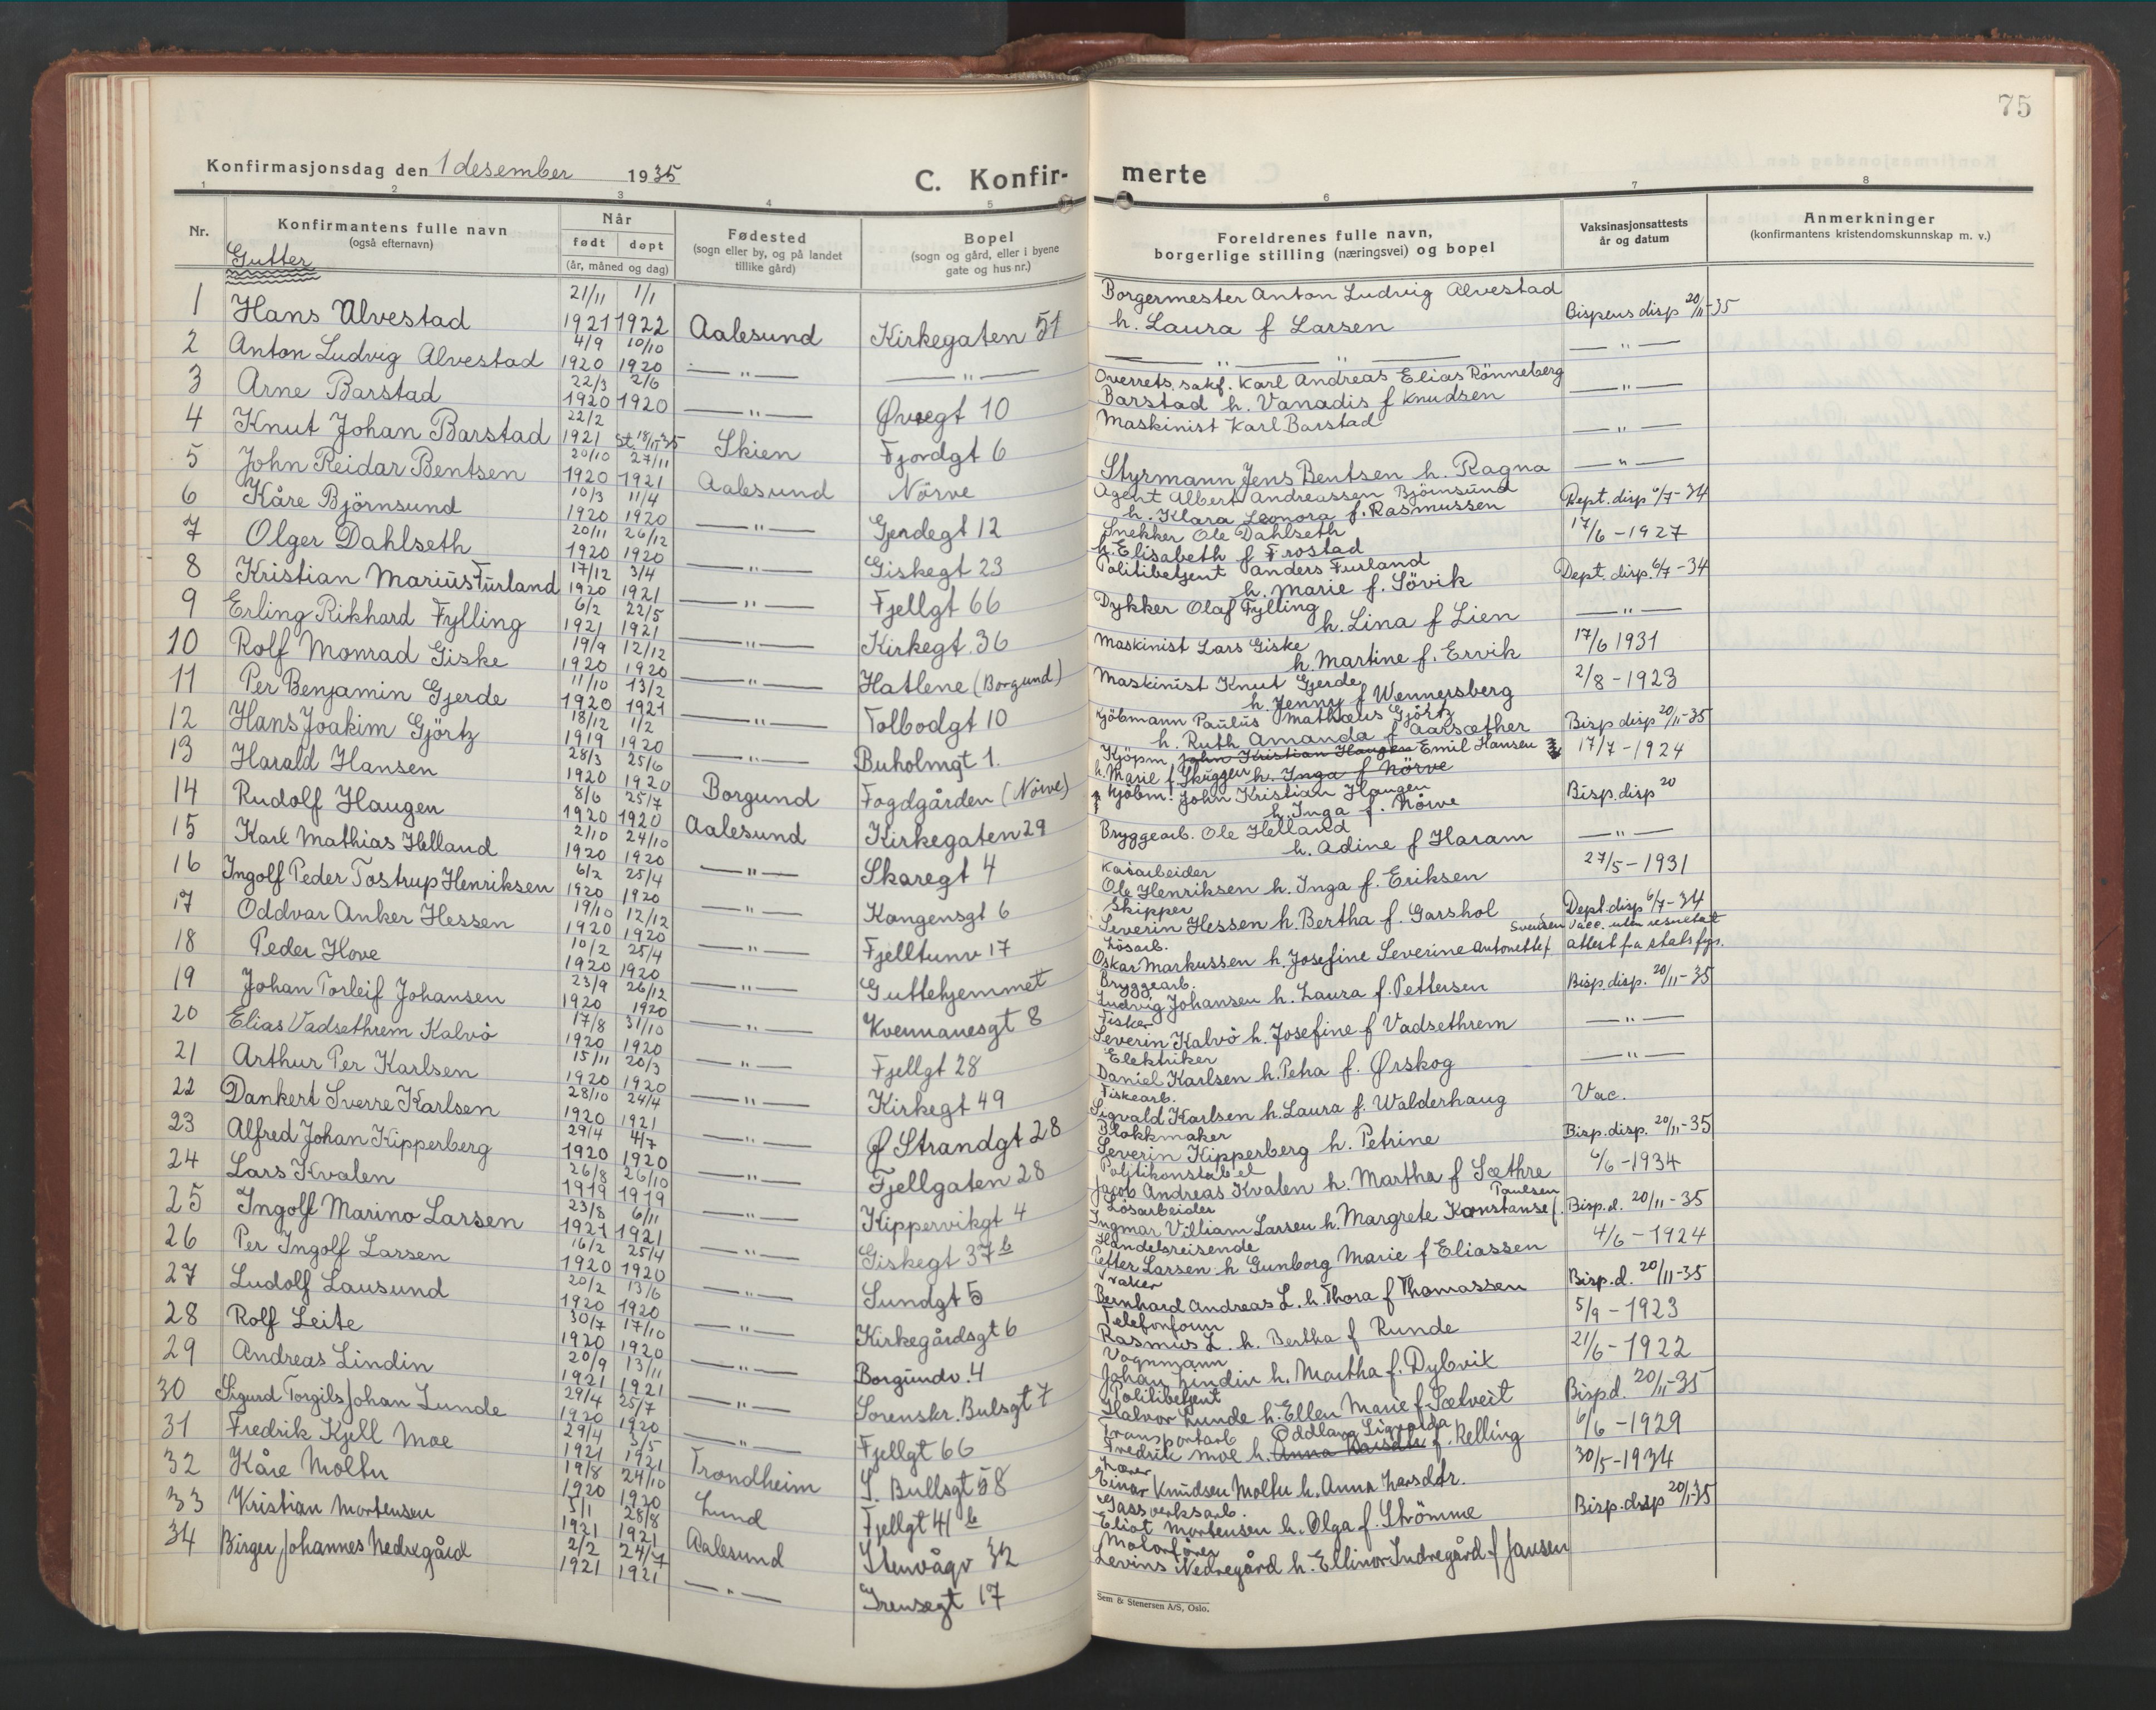 75
Konfirmasjonsdag den 1 desember 1935
C. Konfir-
merte
1 2 3 4 5 6 7 8
Nr.
Konfirmantens fulle navn
(også efternavn)
Gutter
Når
født døpt
(år, måned og dag)
Fødested
(sogn eller by, og på landet
tillike gård)
Bopel
(sogn og gård, eller i byene
gate og hus nr.)
Foreldrenes fulle navn,
borgerlige stilling (næringsvei) og bopel
Vaksinasjonsattests
år og datum
Anmerkninger
(konfirmantens kristendomskunnskap m. v.)
1 Hans Alvestad 21/11 1921 1/1 1922 Aalesund Kirkegaten 51 Borgermester Anton Ludvig Alvestad h. Laura f Larsen Bispens disp 20/11-35
2 Anton Ludvig Alvestad 4/9 1920 10/10 1920 —"— —"— —"—"— —"—
3 Arne Barstad 22/3 1920 2/6 1920 —"— Øvregt 10 Overrets.sakf. Karl Andreas Elias Rönneberg Barstad h. Vanadis f Knudsen —"—
4 Knut Johan Barstad 22/2 1921 St 18/11 35 Skien Fjordgt 6 Maskinist Karl Barstad —"—
5 John Reidar Bentsen 20/10 1920 27/11 1921 Aalesund Nörve Styrmann Jens Bentsen h. Ragna —"—
6 Kåre Björnsund 10/3 1920 11/4 1920 —"— Gjerdegt 12 Agent Albert Andreassen Björnsund h. Klara Leonora f. Rasmussen Dept. disp 6/7-34
7 Olger Dahlseth 20/11 1920 26/12 1920 —"— Giskegt 23 Snekker Ole Dahlseth h. Elisabeth f Frostad 17/6-1927
8 Kristian Marius Furland 17/12 1920 3/4 1921 —"— Fjellgt 66 Politibetjent Anders Furland h. Marie f. Sövik Dept. disp. 6/7-34
9 Erling Rikhard Fylling 6/2 1921 22/5 1921 —"— Kirkegt. 36 Dykker Olaf Fylling h. Lina f Lien —"—
10 Rolf Monrad Giske 19/9 1920 12/12 1920 —"— Hatlene (Borgund) Maskinist Lars Giske h. Martine f. Ervik 17/6 1931
11 Per Benjamin Gjerde 11/10 1920 13/2 1921 —"— Tolbodgt 10 Maskinist Knut Gjerde h. Jenny f Wennersberg 2/8-1923
12 Hans Joakim Gjörtz 18/12 1919 1/2 1920 —"— Buholmgt 1. Kjöbmann Paulus Mathæus Gjörtz h. Ruth Amanda f Aarsæther Bisp disp 20/11-35
13 Harald Hansen 28/3 1920 25/6 1920 Borgund Fogdgården (Nörve) Kjöpm. John Kristian Haugen Emil Hansen h. Marie f. Skuggen h. Inga f Nörve 17/7-1924
14 Rudolf Haugen 8/6 1920 25/7 1920 Aalesund Kirkegaten 29 Kjöbm. John Kristian Haugen h. Inga f. Nörve Bisp. disp 20
15 Karl Mathias Helland 2/10 1920 24/10 1920 —"— Skaregt 4 Bryggearb. Ole Helland h. Adine f Haram —"—
16 Ingolf Peder Tostrup Henriksen 6/2 1920 25/4 1920 —"— Kongensgt 6 Kaiarbeider Ole Henriksen h. Inga f. Eriksen 27/5-1931
17 Oddvar Anker Hessen 19/10 1920 12/12 1920 —"— Fjelltunv 17 Skipper Severin Hessen h. Bertha f. Garshol Dept. disp 6/7-34
18 Peder Hove 10/2 1920 25/4 1920 —"— Guttehjemmet Lösarb. Oskar Markussen h. Josefine Severine Antonette f Svendsen Vacc. uten resultat attest fra statsfys.
19 Johan Torleif Johansen 23/9 1920 26/12 1920 —"— Kvennanesgt 8 Bryggearb. Ludvig Johansen h. Laura f. Pettersen Bisp. disp. 20/11-35
20 Elias Vadsethrem Kalvö 17/8 1920 31/10 1920 —"— Fjellgt 28 Fisker Severin Kalvö h. Josefine f Vadsethrem —"—
21 Arthur Per Karlsen 15/11 1920 20/3 1920 —"— Kirkegt 49 Elektriker Daniel Karlsen h. Peha f. Ørskog —"—
22 Dankert Sverre Karlsen 28/10 1920 24/4 1921 —"— Ø Strandgt 28 Fiskearb. Sigvald Karlsen h. Laura f. Walderhaug Vac.
23 Alfred Johan Kipperberg 29/4 1920 4/7 1920 —"— Fjellgaten 28 Blokkmaker Severin Kipperberg h. Petrine Bisp. disp. 20/11-35
24 Lars Kvalen 26/8 1919 26/10 1919 —"— Kippervikgt 4 Politikonstabel Jacob Andreas Kvalen h. Martha f Sæthre 6/6-1934
25 Ingolf Marino Larsen 23/8 1921 6/11 1921 —"— Giskegt 37b Lösarbeider Ingmar Villiam Larsen h. Margrete Konstanse f. Paulsen Bisp. d. 20/11-35
26 Per Ingolf Larsen 16/2 1920 25/4 1920 —"— Sundgt 5 Handelsreisende Petter Larsen h Gunborg Marie f Eliassen 4/6-1924
27 Ludolf Lausund 20/2 1920 13/6 1920 —"— Kirkegårdsgt 6 Vraker Bernhard Andreas L. h. Thora f Thomassen Bisp. d. 20/11-35
28 Rolf Leite 30/7 1920 17/10 1920 —"— Borgundv. 4 Telefonform Rasmus L. h. Bertha f Runde 5/9-1923
29 Andreas Lindin 20/9 1921 13/11 1921 —"— Sorenskr. Bulsgt 7 Vognmann Johan Lindin h. Martha f. Dybvik 21/6-1922
30 Sigurd Torgils Johan Lunde 29/4 1920 25/7 1920 —"— Fjellgt 66 Politibetjent Halvor Lunde h. Ellen Marie f. Sætveit Bisp d. 20/11-35
31 Fredrik Kjell Moe 29/4 1921 3/5 1921 Trondheim S. Bullsgt 58 Transportarb Fredrik Moe h. Oddlaug Sigvalda f. Relling 6/6-1929
32 Kåre Moltu 19/8 1920 24/10 1920 Lund Fjellgt 41 b Lærer Einar Knudsen Moltu h. Anna Larsdtr. 30/5-1934
33 Kristian Mortensen 5/1 1921 28/8 1921 Aalesund Stenvågv 32 Gassverksarb. Eliot Mortensen h. Olga f. Strömme Bisp. disp 20/11-35
34 Birger Johannes Nedregård 2/2 1921 24/7 1921 —"— Grensegt 17 Motorfører Levins Nedregård h. Ellinor Indregård f Jansen
Sem & Stenersen A/S, Oslo.